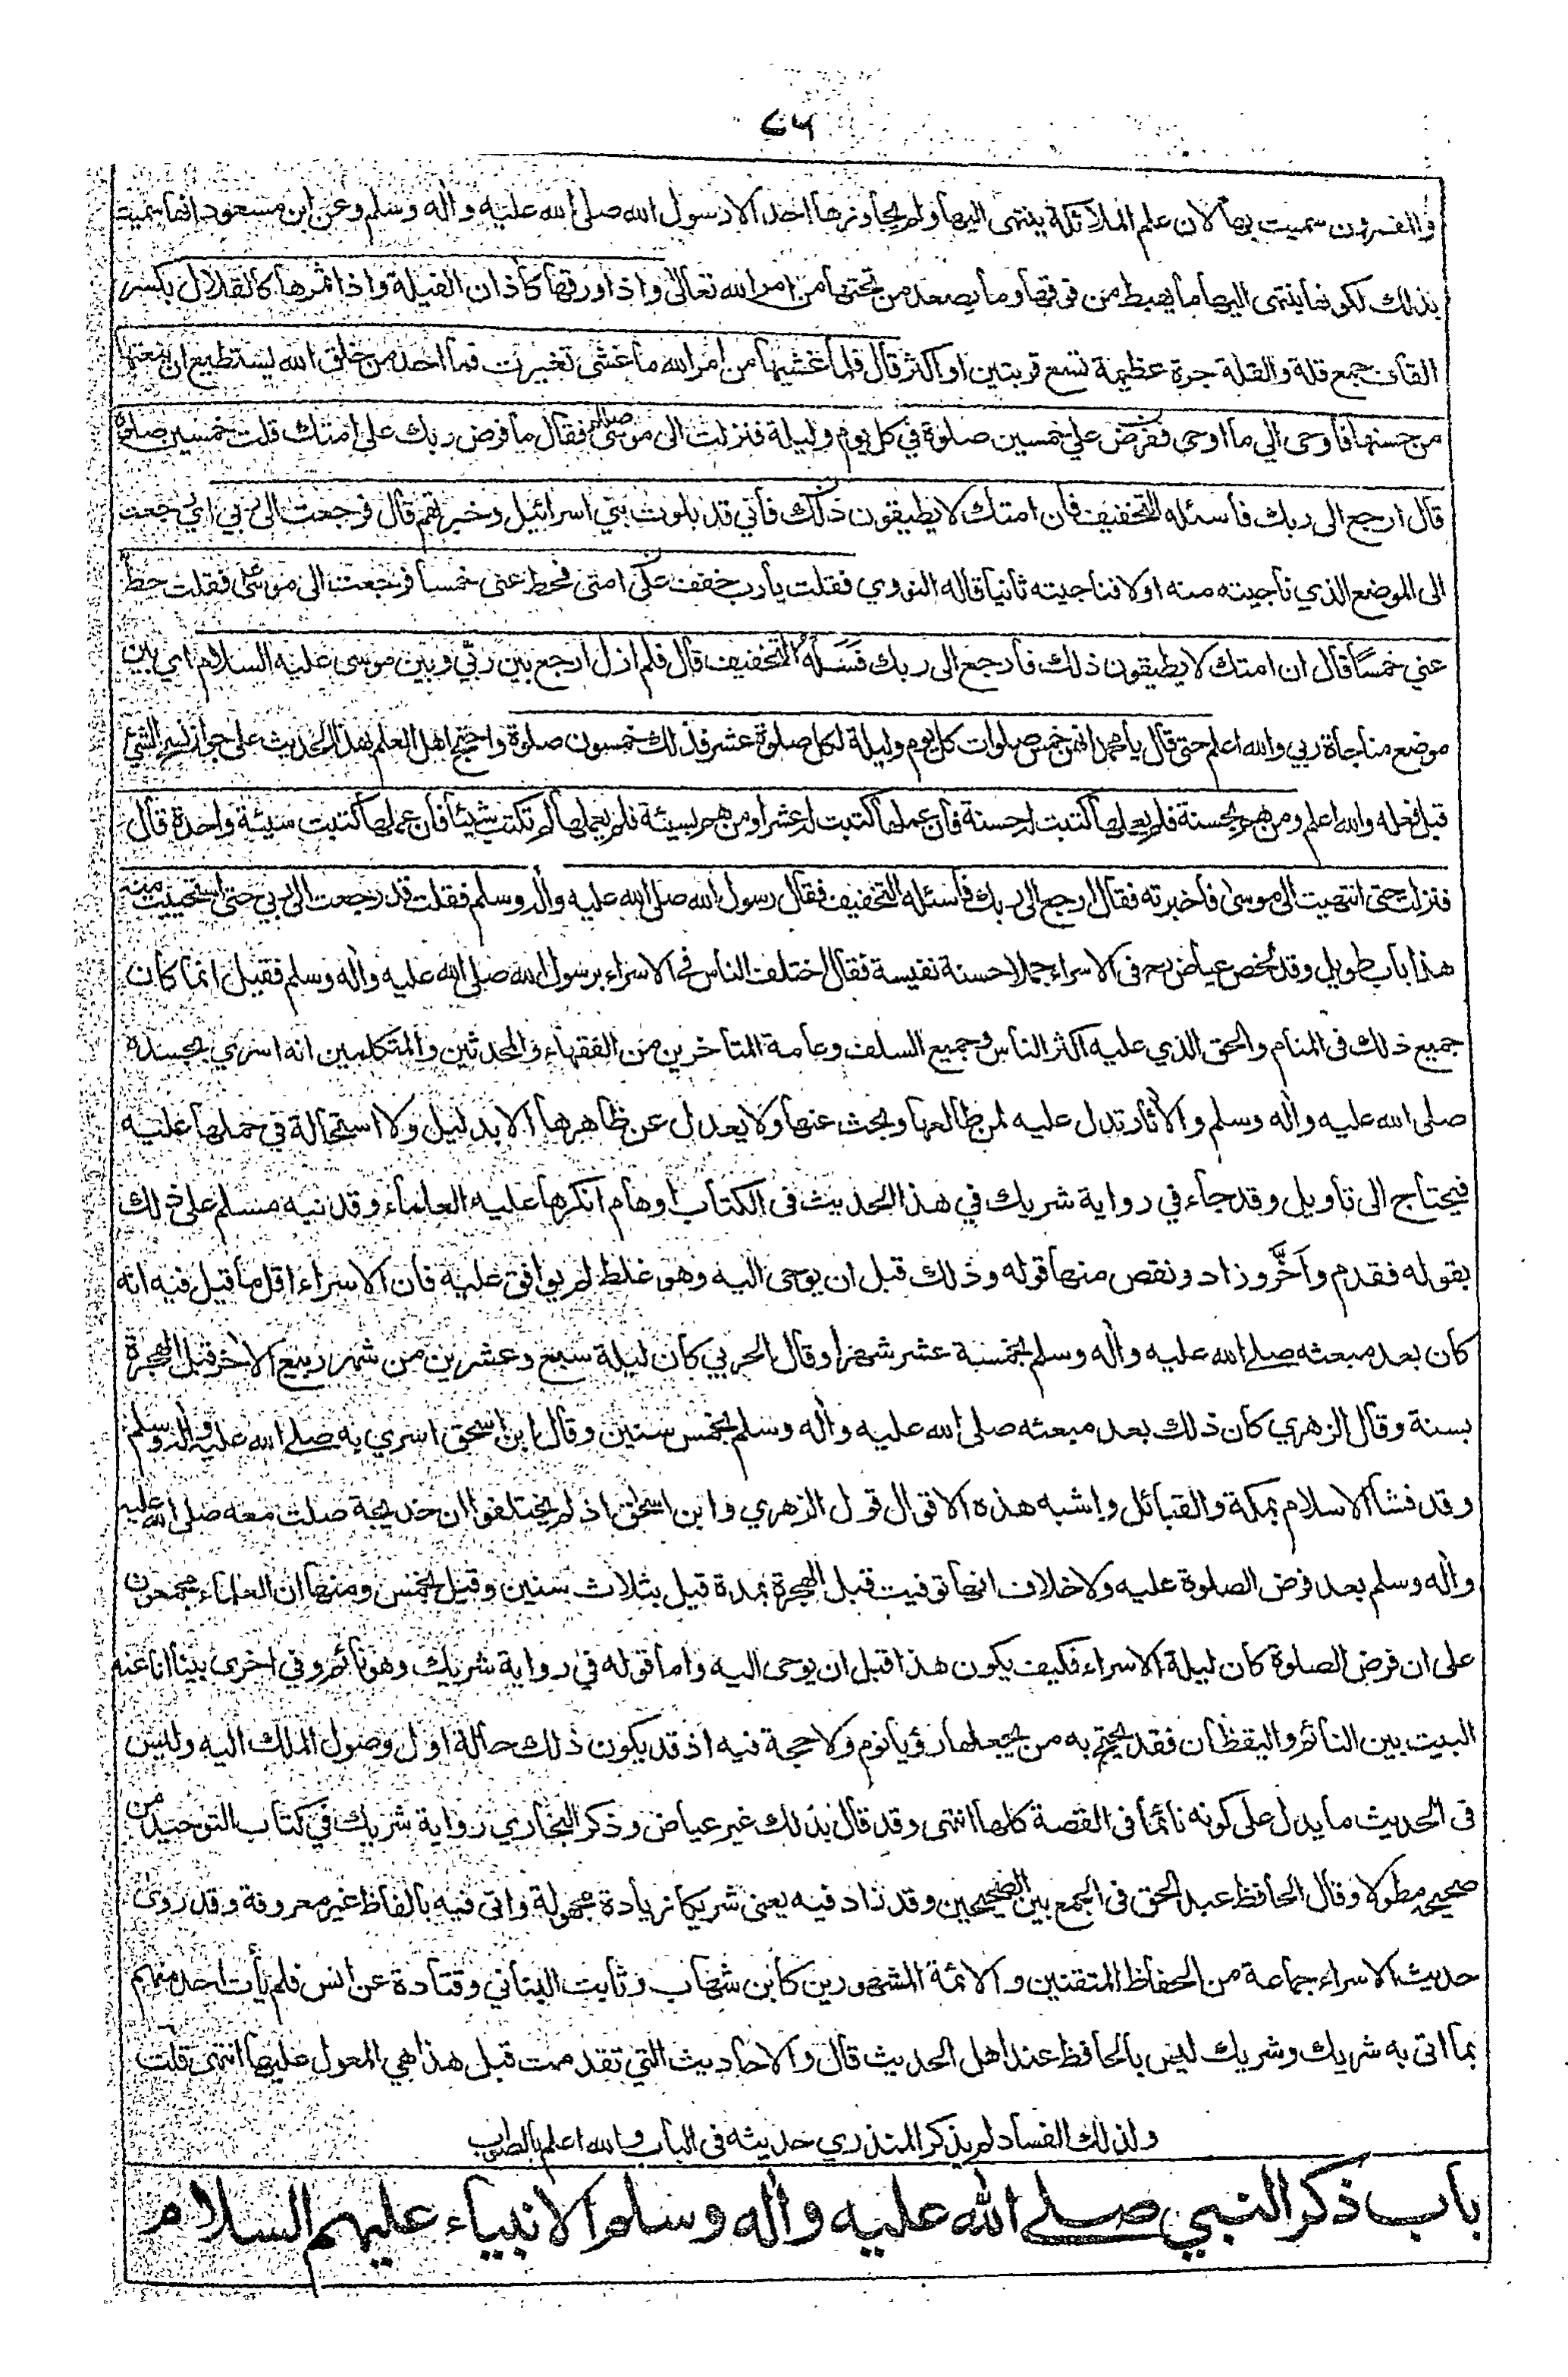 ٧٦
والمفسرون سميت بها لان علم الملائكة ينتهى اليها ولم يجاوزها احد الا رسول الله صلى الله عليه واله وسلم وعن ابن مسعود انها سميت
بذلك لكونها ينتهى اليها ما يهبط من فوقها وما يصعد من تحتها من امر الله تعالى واذا ورقها كاذان الفيلة واذا ثمرها كالقلال بكسر
القاف جمع قلة والقلة جرة عظيمة تسع قربتين او اكثر قال فلما غشيها من امر الله ما غشى تغيرت فما احد من خلق الله يستطيع ان ينعتها
من حسنها فاوحى الي ما اوحى ففرض علي خمسين صلوة في كل يوم وليلة فنزلت الى موسى فقال ما فرض ربك على امتك قلت خمسين صلوة
قال ارجع الى ربك فاسئله التخفيف فان امتك لا يطيقون ذلك فاني قد بلوت بني اسرائيل وخبرتهم قال فرجعت الى ربي اي رجعت
الى الموضع الذي ناجيته منه اولا فناجيته ثانيا قاله النووي فقلت يارب خفف على امتى فحط عنى خمسا فرجعت الى موسى فقلت حط
عني خمسًا قال ان امتك لا يطيقون ذلك فارجع الى ربك فَسَلْهُ التخفيف قال فلم ازل ارجع بين ربّي وبين موسى عليه السلام اي بين
موضع مناجاة ربي والله اعلم حتى قال يا محمد انهن خمس صلوات كل يوم وليلة لكل صلوة عشر فذلك خمسون صلوة واحتج اهل العلم بهذا الحديث على جواز نسخ الشئ
قبل فعله والله اعلم ومن هم بحسنة فلم يعملها كتبت له حسنة فان عملها كتبت له عشرا ومن هم بسيئة فلم يعملها لم تكتب شيئا فان عملها كتبت سيئة واحدة قال
فنزلت حتى انتهيت الى موسى فاخبرته فقال ارجع الى ربك فاسئله التخفيف فقال رسول الله صلى الله عليه واله وسلم فقلت قد رجعت الى ربي حتى استحييت منه
هذا باب طويل وقد لخص عياض رح فى الاسراء جملا حسنة نفيسة فقال اختلف الناس فى الاسراء برسول الله صلى الله عليه واله وسلم فقيل انما كان
جميع ذلك فى المنام والحق الذي عليه اكثر الناس وجميع السلف وعامة المتاخرين من الفقهاء والمحدثين والمتكلمين انه اسري بجسده
صلى الله عليه واله وسلم والاثار تدل عليه لمن طالعها وبحث عنها ولا يعدل عن ظاهرها الا بدليل ولا استحالة في حملها عليه
فيحتاج الى تاويل وقد جاء في رواية شريك في هذا الحديث فى الكتاب اوهام انكرها عليه العلماء وقد نبه مسلم على ذلك
بقوله فقدم واَخَّر وزاد ونقص منها قوله وذلك قبل ان يوحى اليه وهو غلط لم يوافق عليه فان الاسراء اقل ما قيل فيه انه
كان بعد مبعثه صلى الله عليه واله وسلم بخمسة عشر شهرا وقال الحربي كان ليلة سبع وعشرين من شهر ربيع الاخر قبل الهجرة
بسنة وقال الزهري كان ذلك بعد مبعثه صلى الله عليه واله وسلم بخمس سنين وقال ابن اسحق اسري به صلى الله عليه واله وسلم
وقد فشا الاسلام بمكة والقبائل واشبه هذه الاقوال قول الزهري وابن اسحق اذ لم يختلفوا ان خديجة صلت معه صلى الله عليه
واله وسلم بعد فرض الصلوة عليه ولا خلاف انها توفيت قبل الهجرة بمدة قيل بثلاث سنين وقيل بخمس ومنها ان العلماء مجمعون
على ان فرض الصلوة كان ليلة الاسراء فكيف يكون هذا قبل ان يوحى اليه واما قوله في رواية شريك وهو نائم وفي اخرى بينا انا عند
البيت بين النائم واليقظان فقد يحتج به من يجعلها رؤيا نوم ولا حجة فيه اذ قد يكون ذلك حالة اول وصول الملك اليه وليس
فى الحديث ما يدل على كونه نائما فى القصة كلها انتهى وقد قال بذلك غير عياض وذكر البخاري رواية شريك في كتاب التوحيد من
صحيحه مطولا وقال الحافظ عبد الحق فى الجمع بين الصحيحين وقد زاد فيه يعنى شريكا زيادة مجهولة واتى فيه بالفاظ غير معروفة وقد روى
حديث الاسراء جماعة من الحفاظ المتقنين والائمة المشهورين كابن شهاب وثابت البناني وقتادة عن انس فلم يأت احد منهم
بما اتى به شريك وشريك ليس بالحافظ عند اهل الحديث قال والاحاديث التي تقدمت قبل هذا هي المعول عليها انتهى قلت
ولذلك الفساد لم يذكر المنذري حديثه فى الباب والله اعلم بالصواب
باب ذكر النبي صلى الله عليه واله وسلم الانبياء عليهم السلام